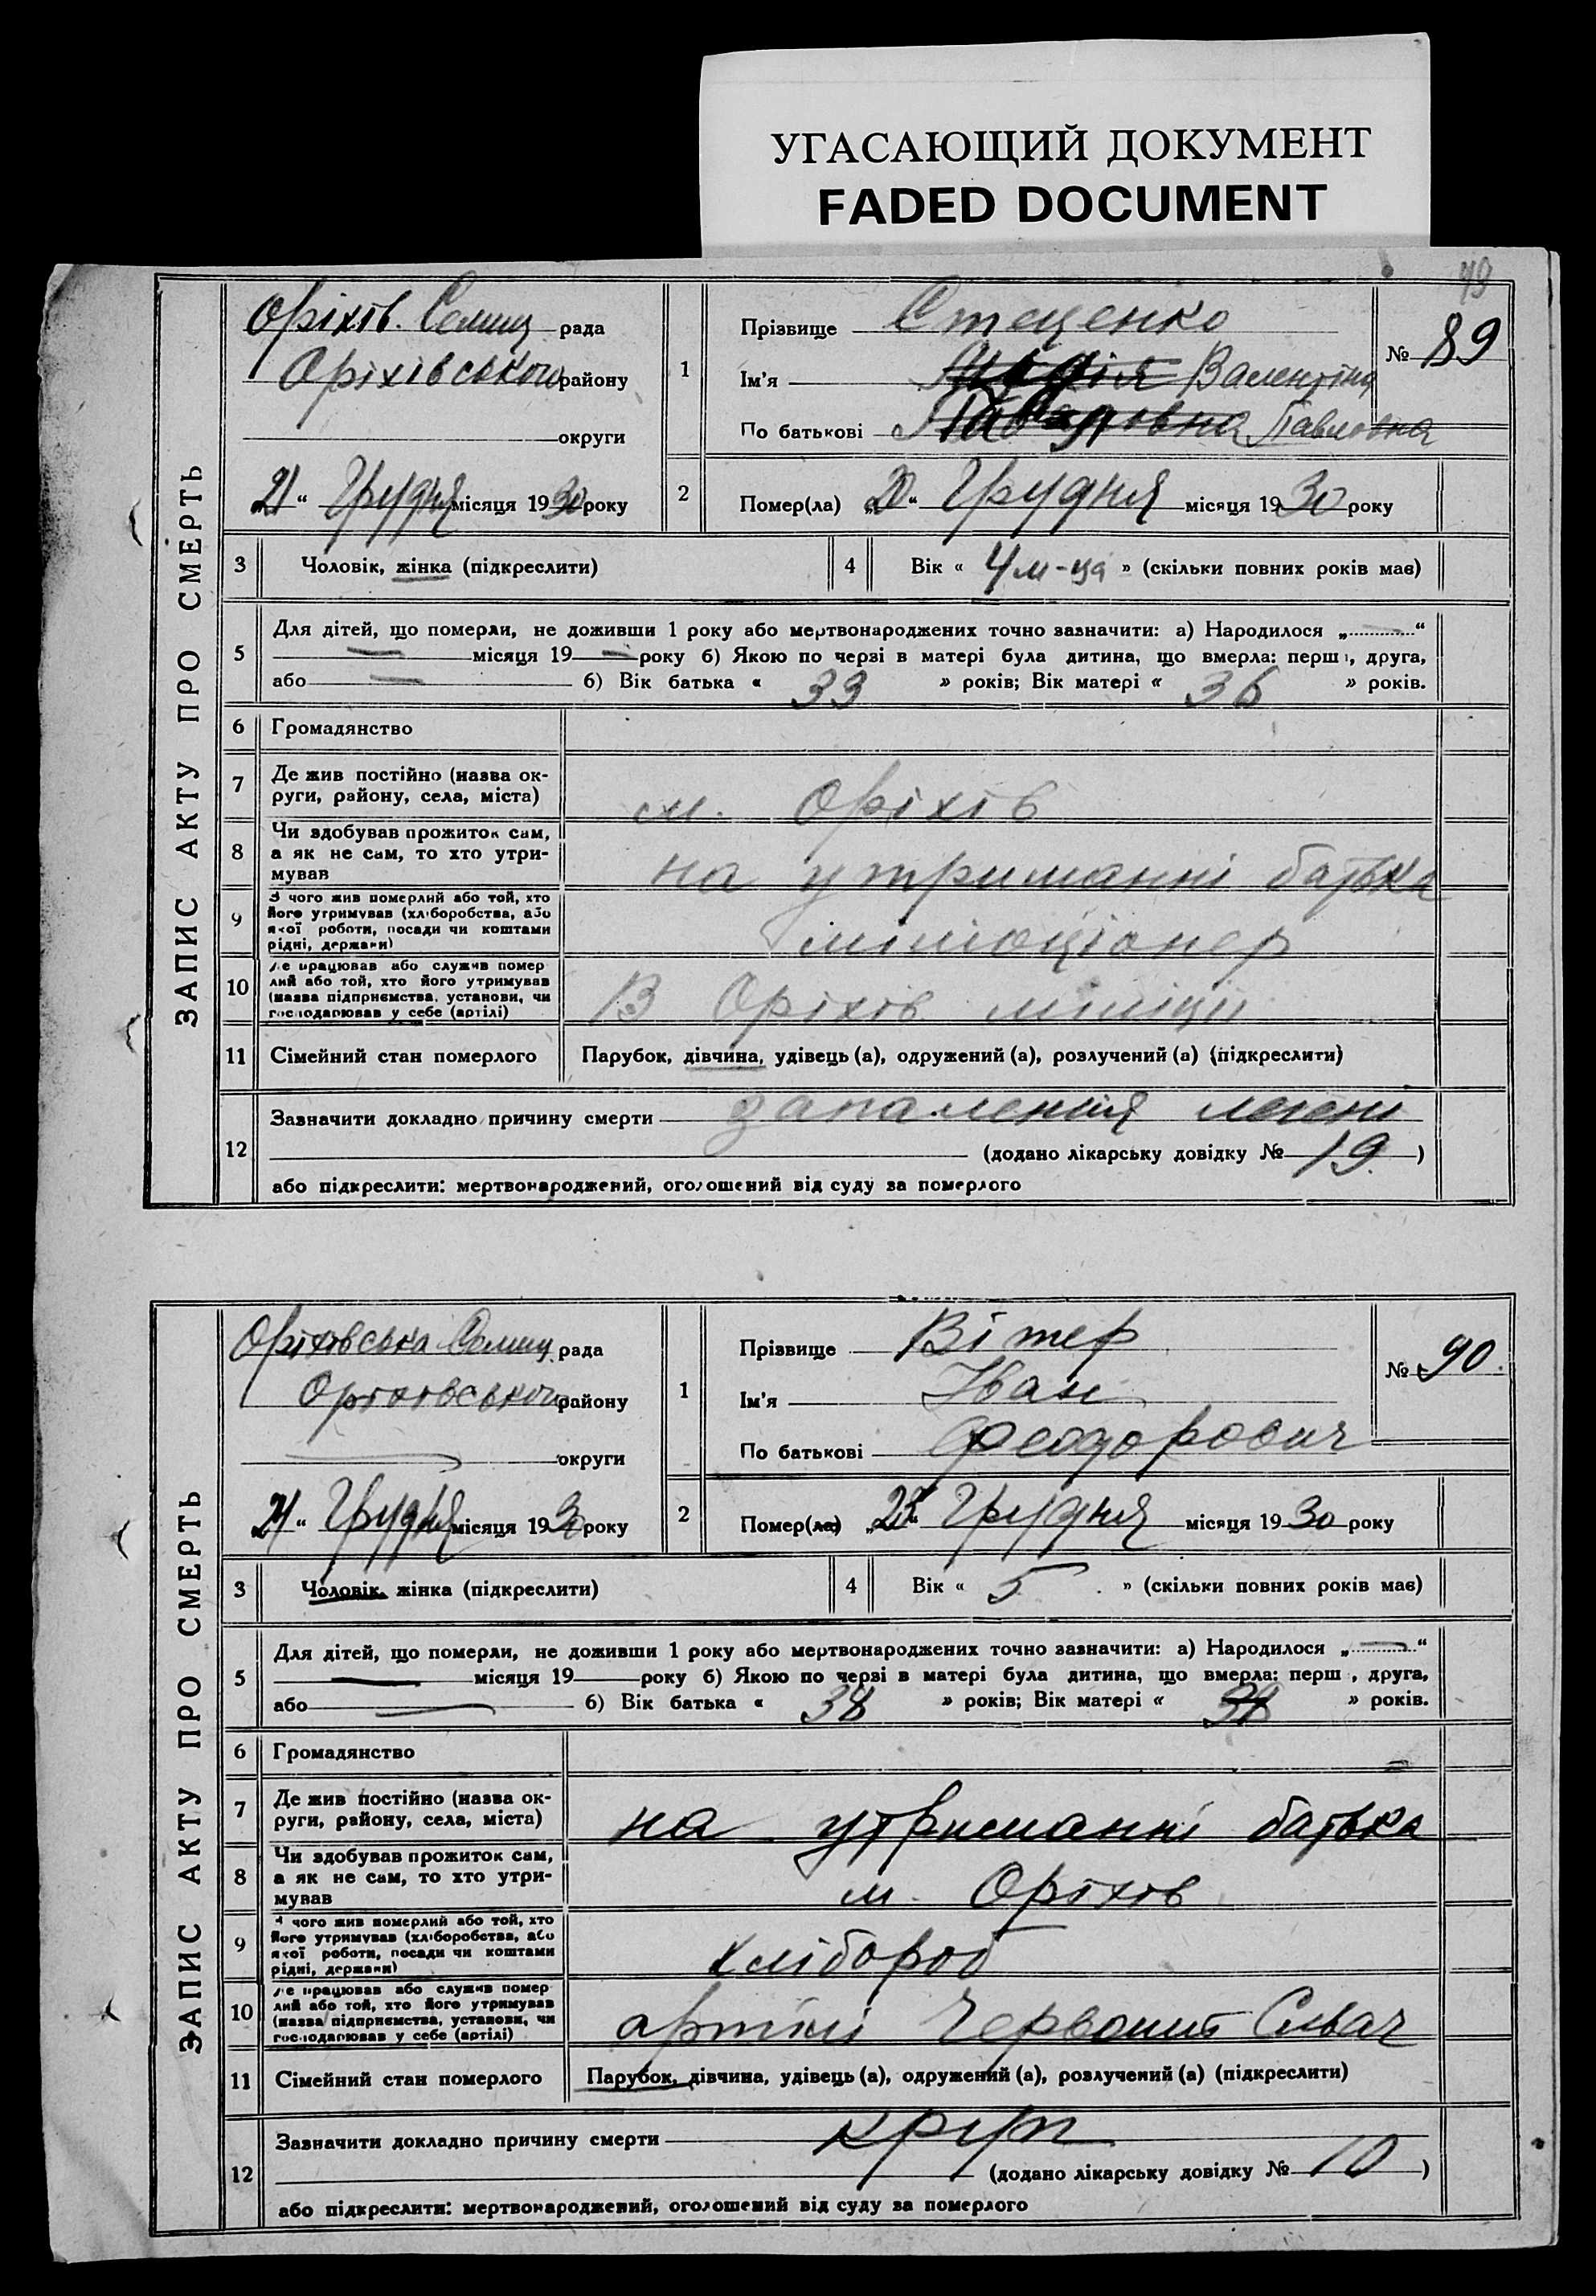 УГАСАЮЩИЙ ДОКУМЕНТ
FADED DOCUMENT
ЗАПИС АКТУ ПРО СМЕРТЬ
Оріхів. Селищ рада
Оріхівського району
округи
21 " Грудня місяця 1930 року
1
Прізвище Стеценко
Ім'я Валентина
По батькові Павловна
№ 89
2
Помер(ла) „20" Грудня місяця 1930 року
3 Чоловік, жінка (підкреслити)
4 Вік « 4 м-ца » (скільки повних років має)
5 Для дітей, що померли, не доживши 1 року або мертвонароджених точно зазначити: а) Народилося „ — "
— місяця 19 — року б) Якою по черзі в матері була дитина, що вмерла: перш, друга,
або — б) Вік батька « 33 » років; Вік матері « 36 » років.
6 Громадянство
7 Де жив постійно (назва ок-
руги, району, села, міста)
м. Оріхів
8 Чи здобував прожиток сам,
а як не сам, то хто утри-
мував
на утриманні батька
9 З чого жив померлий або той, хто
його утримував (хліборобства, або
якої роботи, посади чи коштами
рідні, держави)
міліціонер
10 Де працював або служив помер
лий або той, хто його утримував
(назва підприємства, установи, чи
господарював у себе (артілі)
В Оріхів міліціі
11 Сімейний стан померлого
Парубок, дівчина, удівець (а), одружений (а), розлучений (а) (підкреслити)
12 Зазначити докладно причину смерти запалення легень
(додано лікарську довідку № 19.)
або підкреслити: мертвонароджений, оголошений від суду за померлого
ЗАПИС АКТУ ПРО СМЕРТЬ
Оріхівська Селищ. рада
Оріхівського району
округи
21 " Грудня місяця 1930 року
1
Прізвище Вітер
Ім'я Іван
По батькові Феодорович
№ 90.
2
Помер(ла) Грудня місяця 1930 року
3 Чоловік, жінка (підкреслити)
4 Вік « 5 » (скільки повних років має)
5 Для дітей, що померли, не доживши 1 року або мертвонароджених точно зазначити: а) Народилося „ — "
— місяця 19 року б) Якою по черзі в матері була дитина, що вмерла: перш, друга,
або — б) Вік батька « 38 » років; Вік матері « » років.
6 Громадянство
7 Де жив постійно (назва ок-
руги, району, села, міста)
на утриманні батька
8 Чи здобував прожиток сам,
а як не сам, то хто утри-
мував
м. Оріхів
9 З чого жив померлий або той, хто
його утримував (хліборобства, або
якої роботи, посади чи коштами
рідні, держави)
хлібороб
10 Де працював або служив помер
лий або той, хто його утримував
(назва підприємства, установи, чи
господарював у себе (артілі)
артілі Червоний Сівач
11 Сімейний стан померлого
Парубок, дівчина, удівець (а), одружений (а), розлучений (а) (підкреслити)
12 Зазначити докладно причину смерти круп
(додано лікарську довідку № 10)
або підкреслити: мертвонароджений, оголошений від суду за померлого